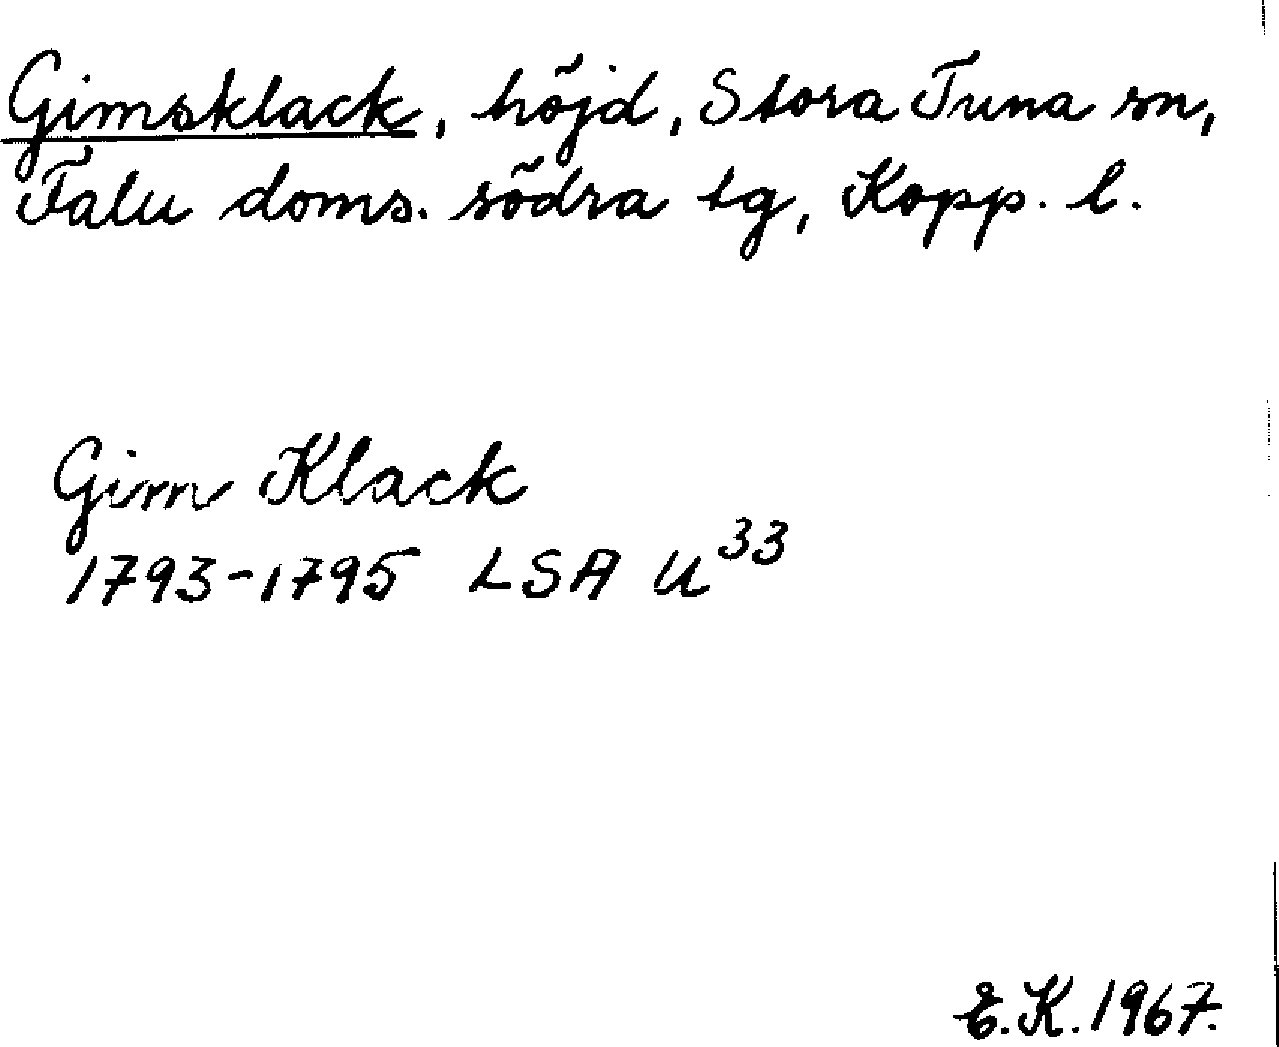 Gimsklack, höjd, Stora Tuna sn,
Falu doms. södra tg, Kopp. l.
Gim Klack
1793-1795 LSA U³³
E.K. 1967.